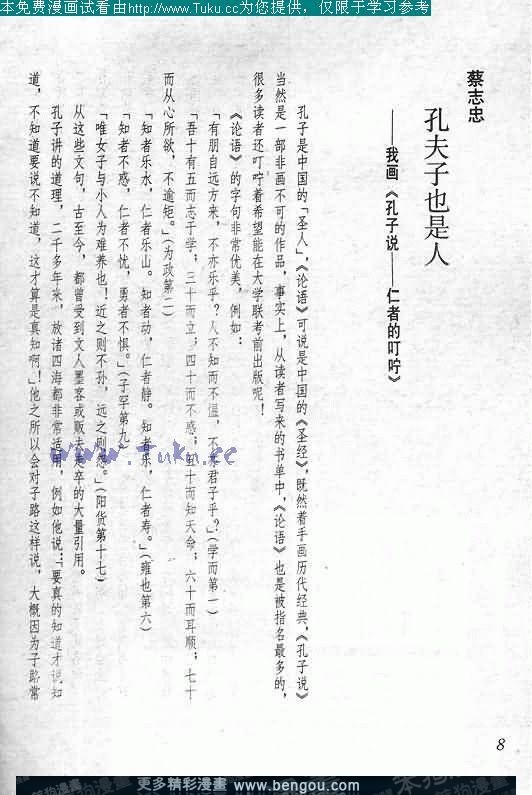 本免费漫画试看由http://www.Tuku.cc为您提供，仅限于学习参考
蔡志忠
孔夫子也是人
——我画《孔子说——仁者的叮咛》
孔子是中国的「圣人」，《论语》可说是中国的《圣经》，既然着手画历代经典，《孔子说》
当然是一部非画不可的作品，事实上，从读者写来的书单中，《论语》也是被指名最多的，
很多读者还叮咛着希望能在大学联考前出版呢！
《论语》的字句非常优美，例如：
「有朋自远方来，不亦乐乎？人不知而不愠，不亦君子乎？」（学而第一）
「吾十有五而志于学；三十而立；四十而不惑；五十而知天命；六十而耳顺；七十
而从心所欲，不逾矩。」（为政第二）
「知者乐水，仁者乐山。知者动，仁者静。知者乐，仁者寿。」（雍也第六）
「知者不惑，仁者不忧，勇者不惧。」（子罕第九）
「唯女子与小人为难养也！近之则不孙，远之则怨。」（阳货第十七）
从这些文句，古至今，都曾受到文人墨客或贩夫走卒的大量引用。
孔子讲的道理，二千多年来，放诸四海都非常适用，例如他说：「要真的知道才说知
道，不知道要说不知道，这才算是真知啊！」他之所以会对子路这样说，大概因为子路常
www.Tuku.cc
8
更多精彩漫画 www.bengou.com